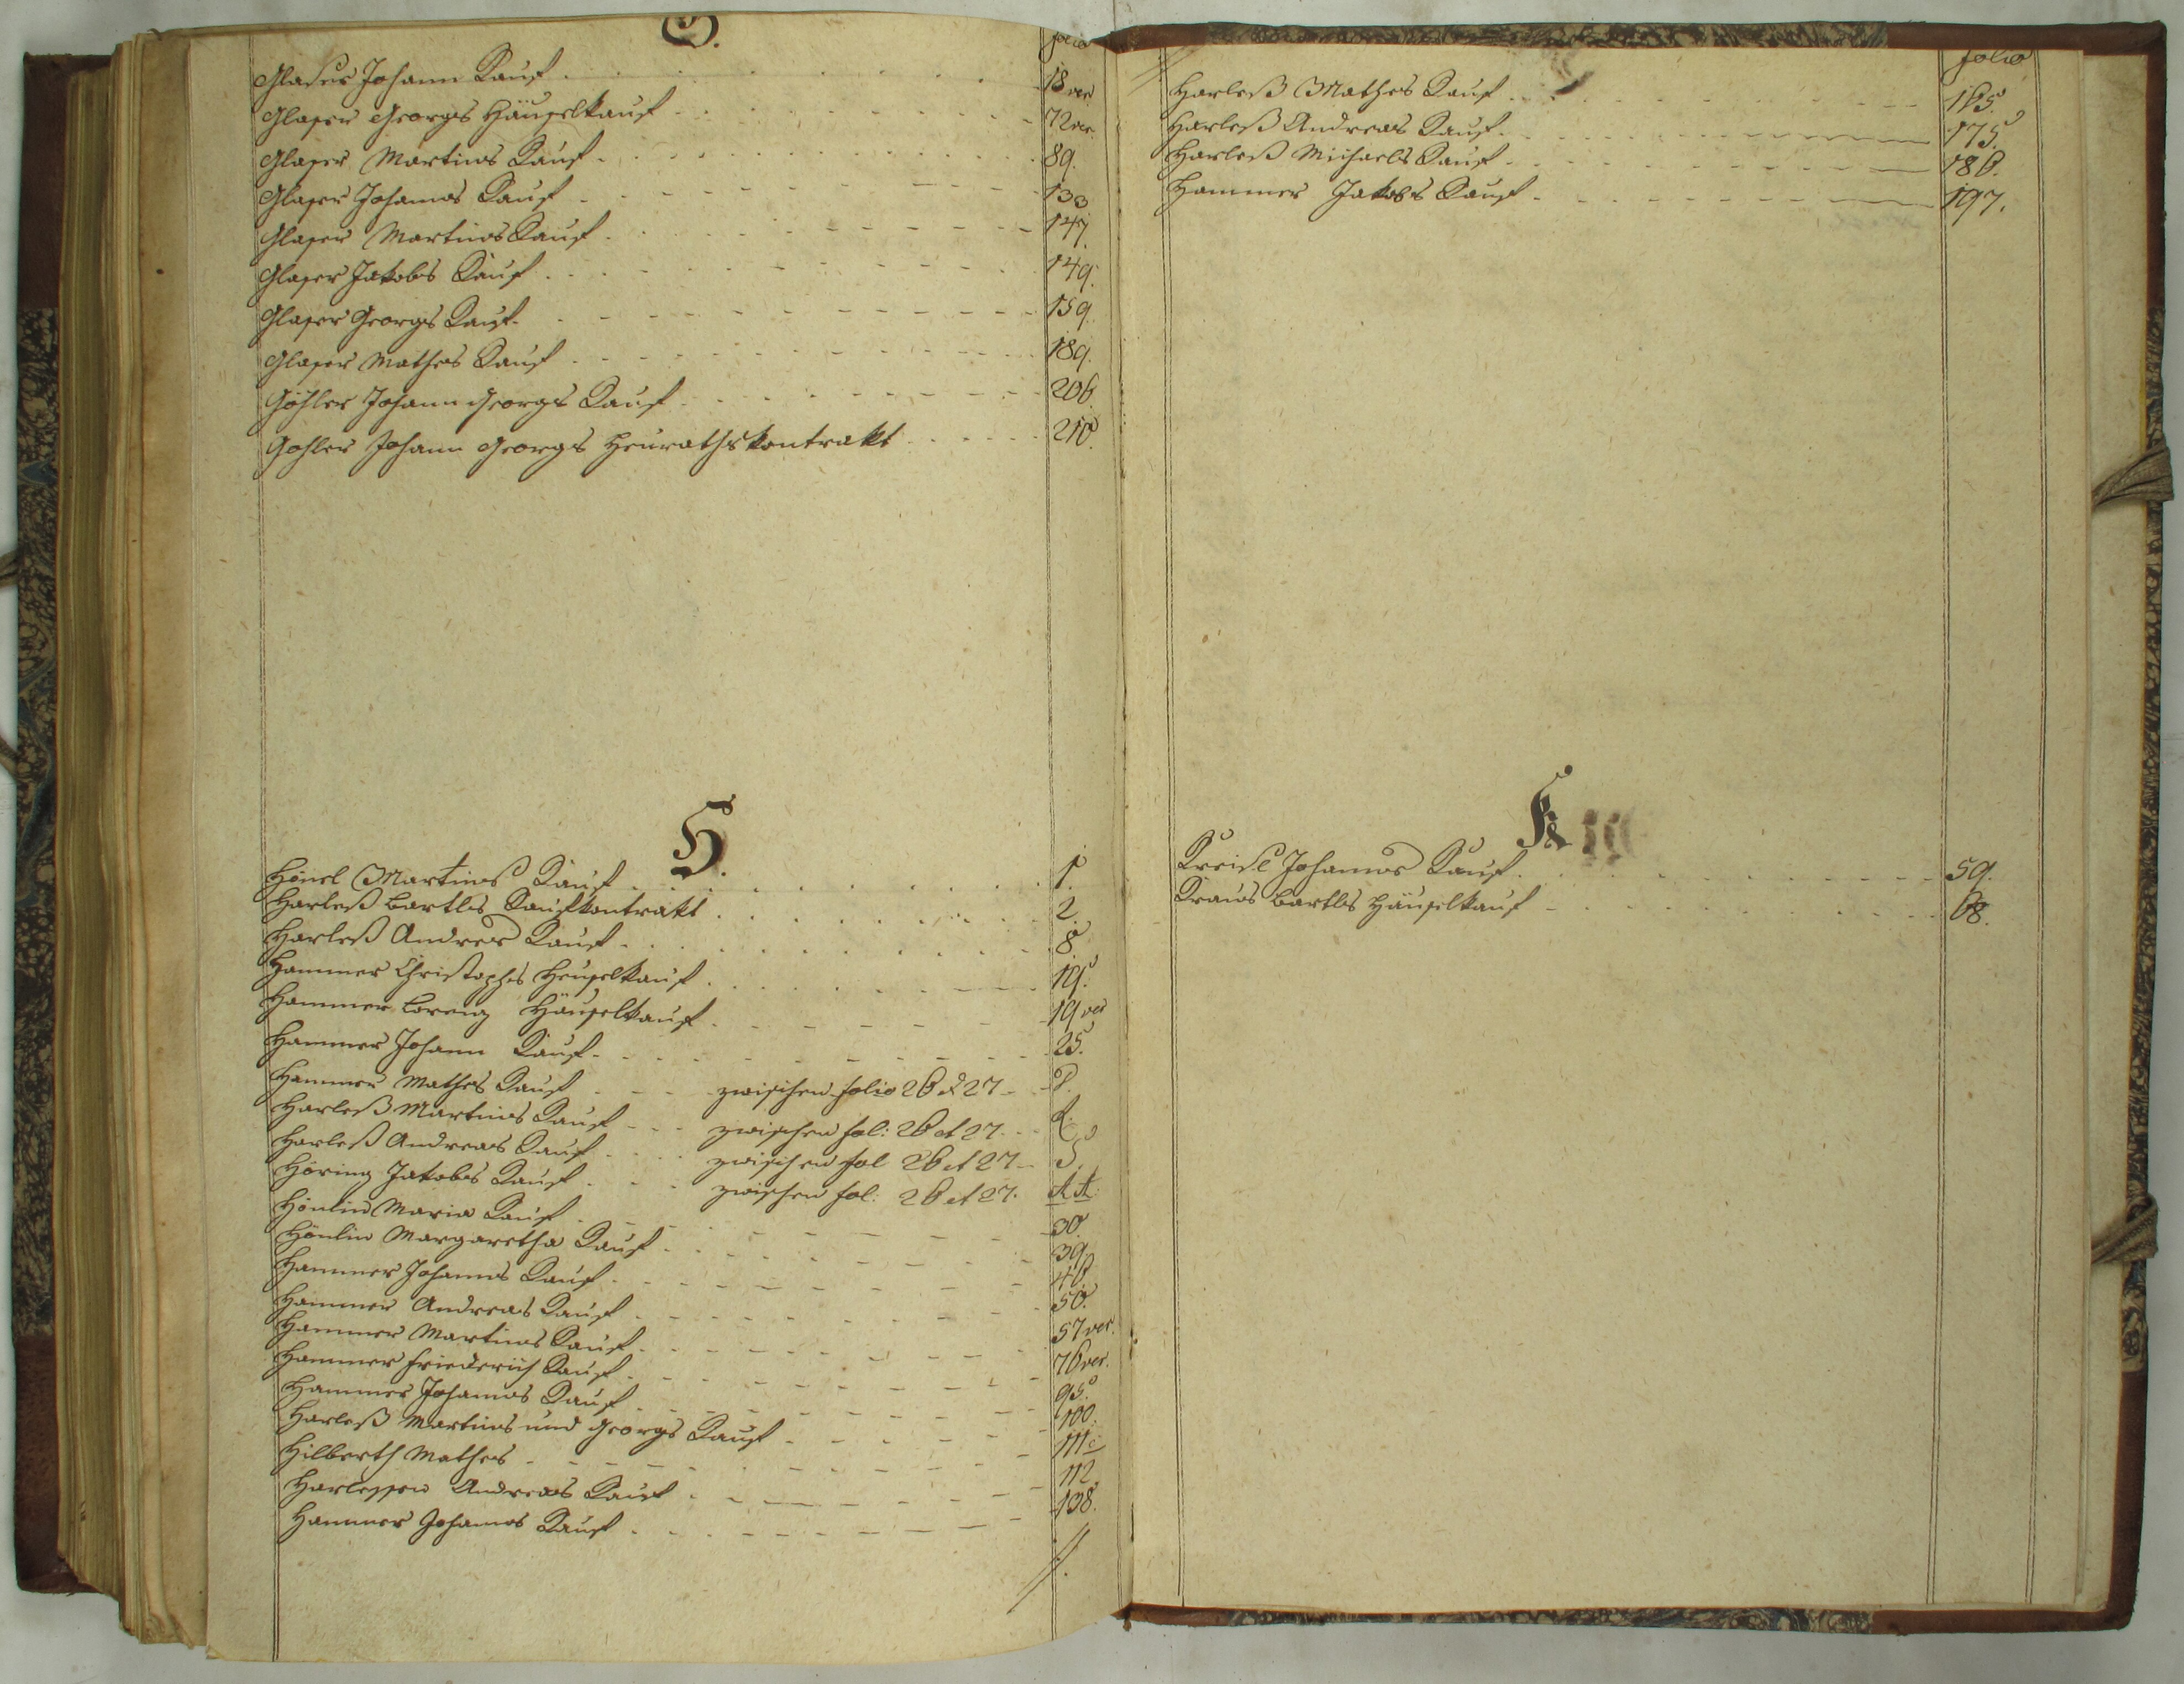 G.
folio
Glaser Johann Kauf 18 ver
Glaser Georgs Häuselkauf 72 ver.
Glaser Martins Kauf 89.
Glaser Johannes Kauf 133
Glaser Martins Kauf 147.
Glaser Jakobs Kauf 149.
Glaser Georgs Kauf 159.
Glaser Mathes Kauf 189.
Göhler Johann Georgs Kauf 206.
Gohler Johann Georgs Heurathskontrakt 210.
H.
Hönel Martines Kauf 1.
Harleß Bartles Kaufkontrakt 2.
Harleß Andres Kauf 8.
Hammer Christophs Heuselkauf 19.
Hammer Lorenz Häuselkauf 19 ver
Hammer Johann Kauf 25.
Hammer Mathes Kauf zwischen folio 26 & 27 P.
Harleß Martines Kauf zwischen fol: 26 et 27. R.
Harleß Andreas Kauf zwischen fol 26 et 27 S.
Höring Jakobs Kauf zwischen fol: 26 et 27. AA.
Hönlin Maria Kauf 30.
Hönlin Margaretha Kauf 39.
Hammer Johannes Kauf 46.
Hammer Andreas Kauf 50.
Hammer Martines Kauf 57 ver.
Hammer Friederich Kauf 76 ver.
Hammer Johannes Kauf 95.
Harleß Martines und Georgs Kauf 100.
Hilberth Mathes 111 c
Harlessen Andreas Kauf 112.
Hammer Johannes Kauf 138.
//.
//
folio
Harleß Mathes Kauf 165.
Harleß Andreas Kauf 175.
Harleß Michaels Kauf 186.
Hammer Jakobs Kauf 197.
K
Kreisl Johannes Kauf 59.
Kraus Bartles Häuselkauf 68.